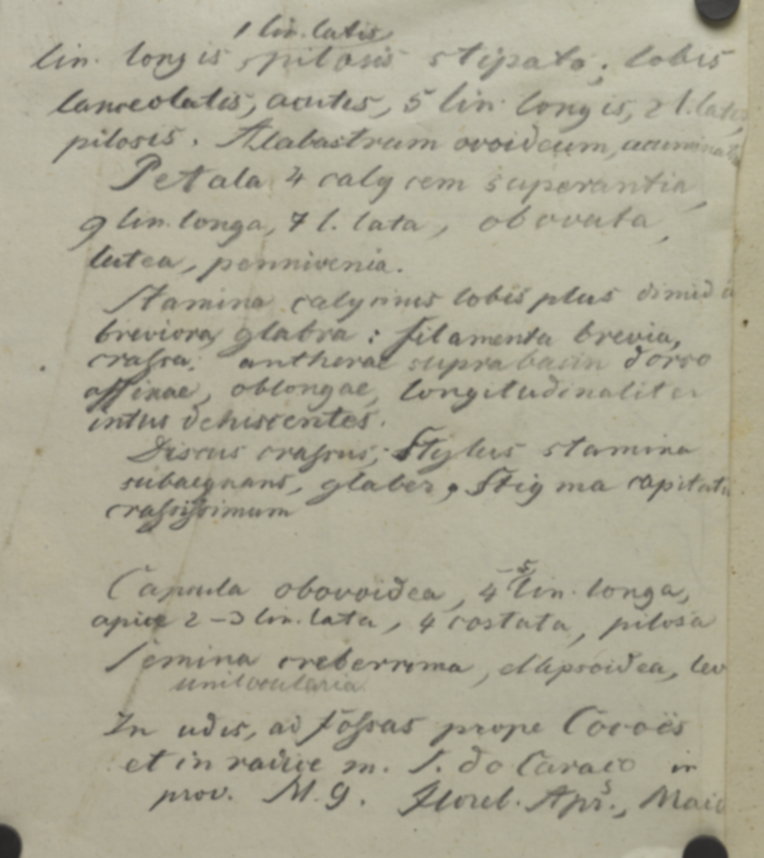 1 lin. latis
lin. longis, pilosis stipata; lobis
lanceolatis, acutis, 5 lin. longis, 2 l. latis,
pilosis. Alabastrum ovoideum, acuminat
Petala 4 calycem superantia,
9 lin. longa, 7 l. lata, obovata,
lutea, pennivenia.
Stamina calycinis lobis plus dimidi
breviora, glabra: filamenta brevia,
crassa; antherae supra basin dorso
affixae, oblongae, longitudinaliter
intus dehiscentes.
Discus crassus; Stylus stamina
subaequans, glaber, Stigma capitatu
crassissimum
Capsula obovoidea, 4-5 lin. longa,
apice 2-3 lin. lata, 4 costata, pilosa
Semina creberrima, ellipsoidea, lev
unilocularia
In udis, ad fossas prope Cocoës
et in radice m. S. do Caraco in
prov. M. G. Floret. Apr., Maio